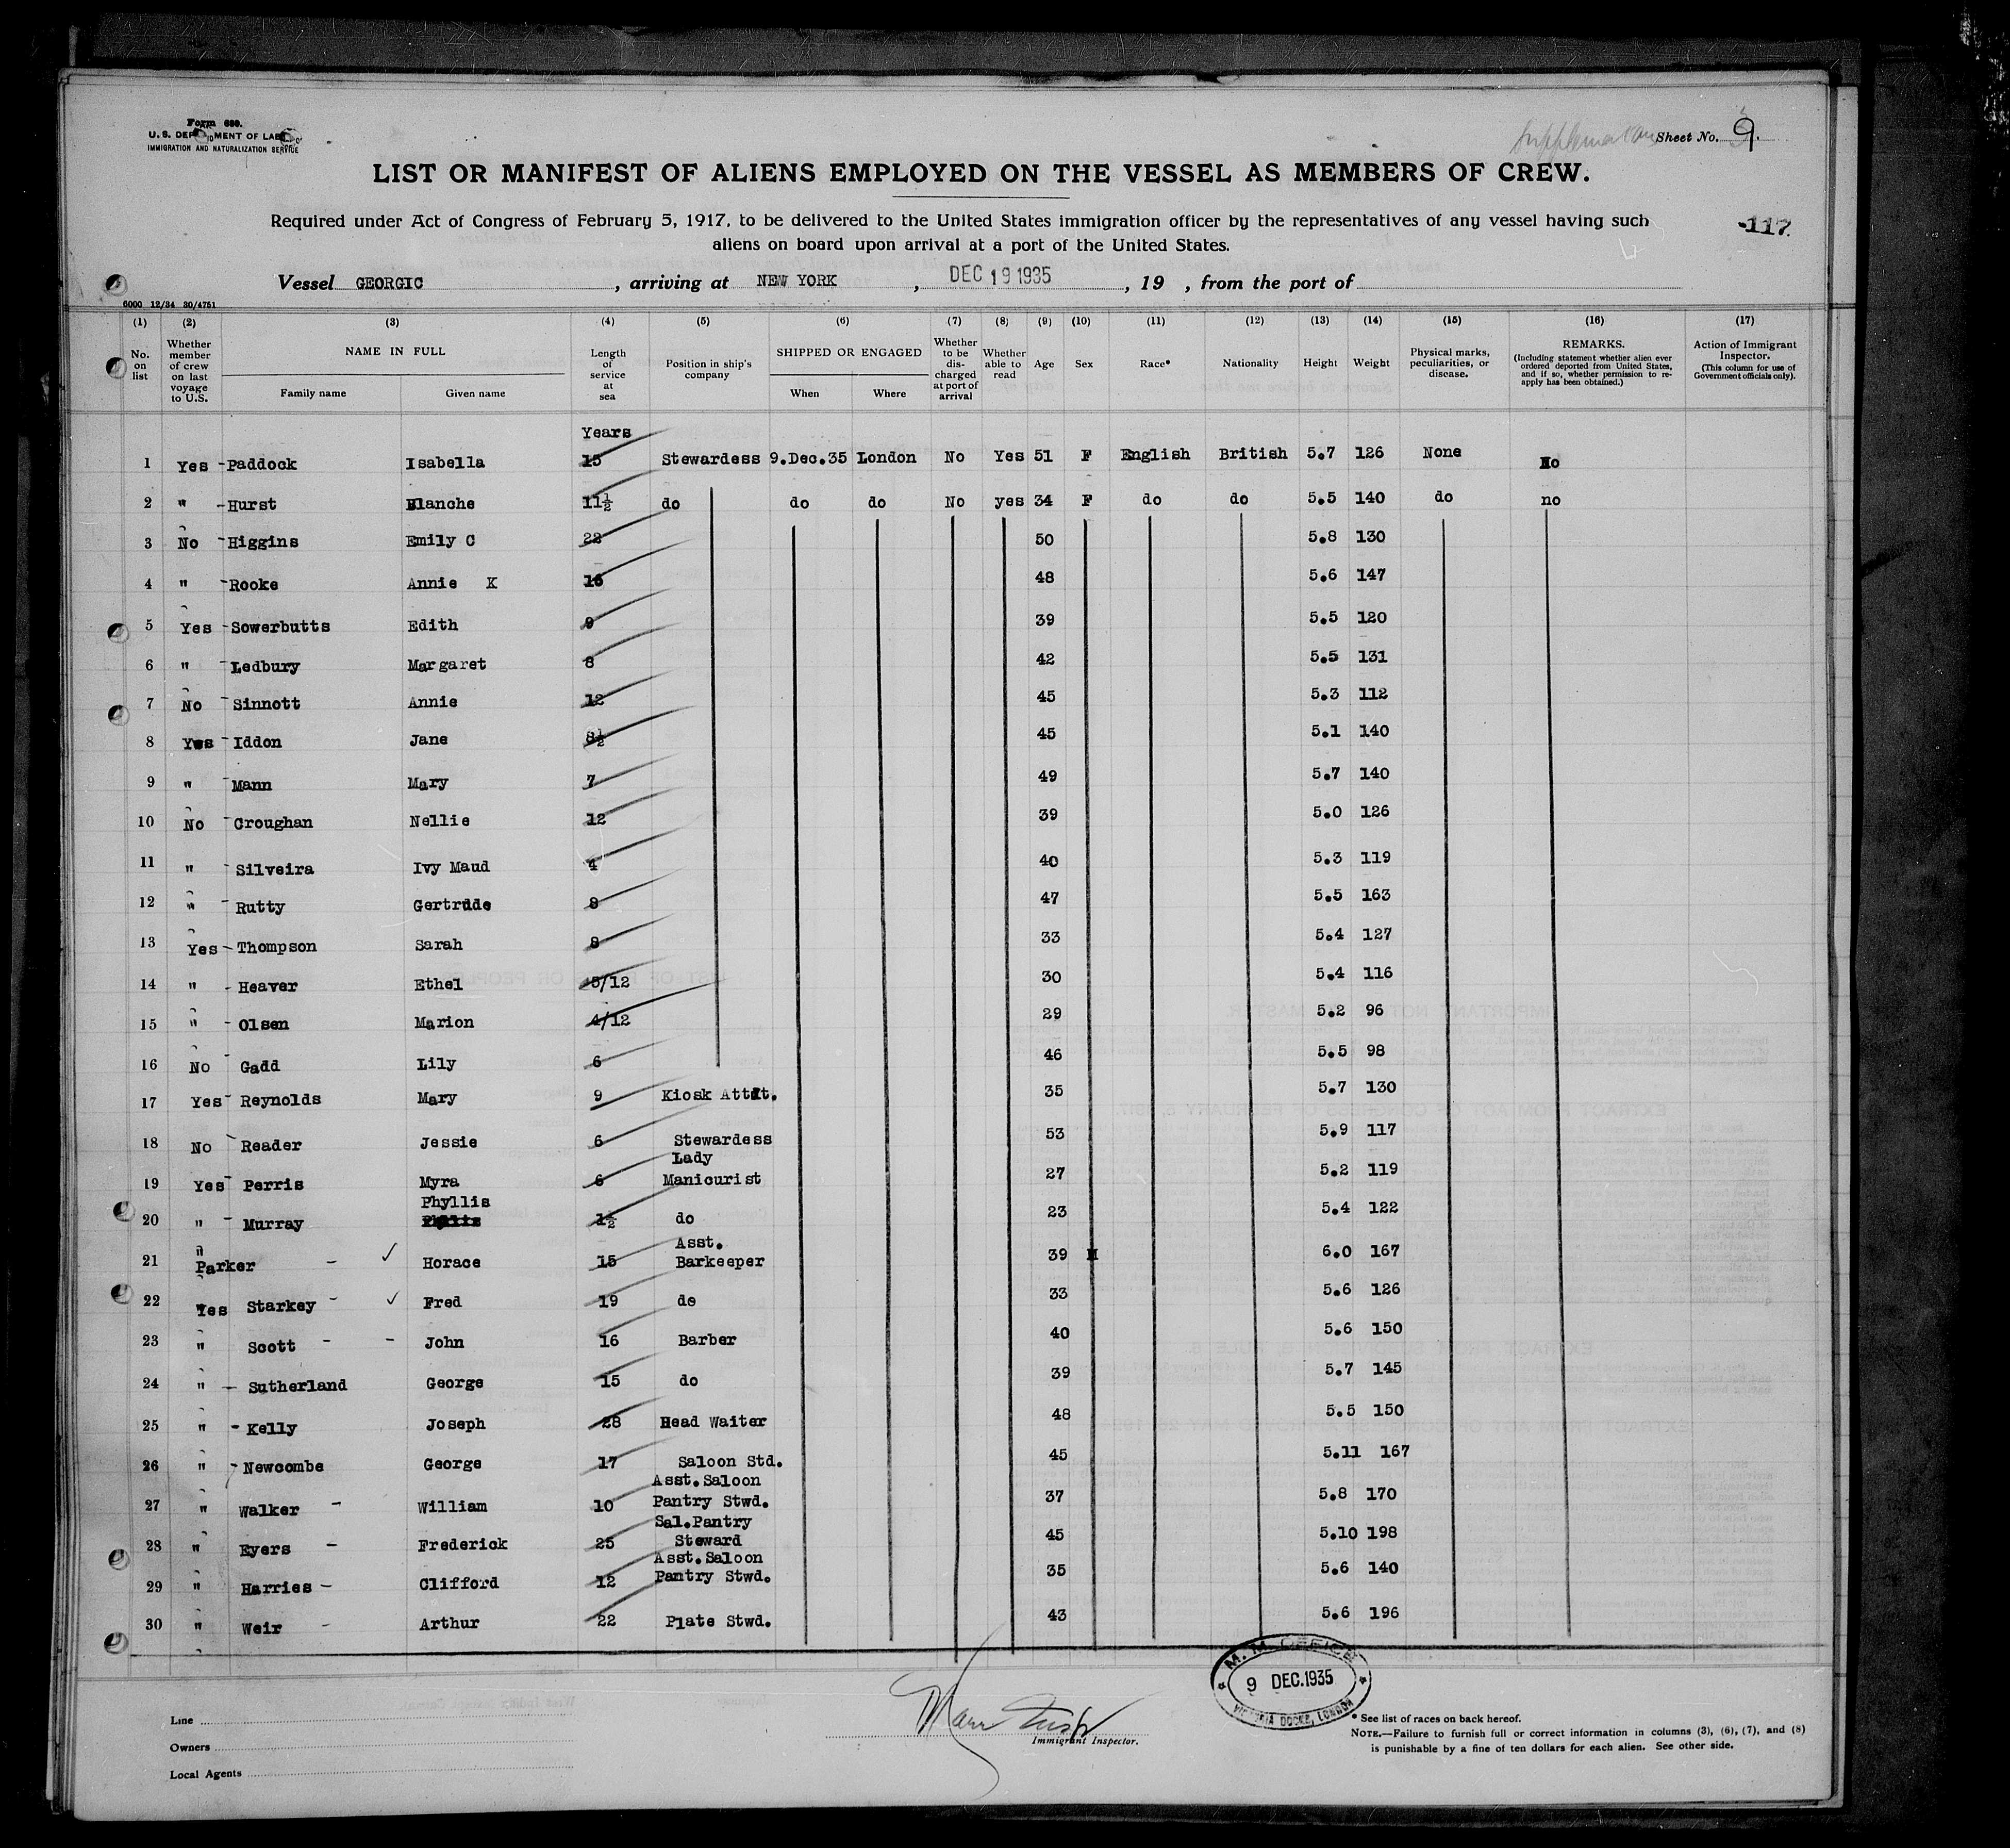 Form 680.
U. S. DEPARTMENT OF LABOR
IMMIGRATION AND NATURALIZATION SERVICE
Sheet No. 9.
LIST OR MANIFEST OF ALIENS EMPLOYED ON THE VESSEL AS MEMBERS OF CREW.
Required under Act of Congress of February 5, 1917, to be delivered to the United States immigration officer by the representatives of any vessel having such
aliens on board upon arrival at a port of the United States.
-117
Vessel GEORGIC, arriving at NEW YORK, DEC 19 1935, 19 , from the port of
6000 12/34 30/4751
(1) (2) (3) (4) (5) (6) (7) (8) (9) (10) (11) (12) (13) (14) (15) (16) (17)
No. on list
Whether member of crew on last voyage to U.S.
NAME IN FULL
Family name
Given name
Length of service at sea
Position in ship's company
SHIPPED OR ENGAGED
When
Where
Whether to be discharged at port of arrival
Whether able to read
Age
Sex
Race*
Nationality
Height
Weight
Physical marks, peculiarities, or disease.
REMARKS.
(Including statement whether alien ever ordered deported from United States, and if so, whether permission to re-apply has been obtained.)
Action of Immigrant Inspector.
(This column for use of Government officials only).
Years
1 Yes - Paddock Isabella 15 Stewardess 9.Dec.35 London No Yes 51 F English British 5.7 126 None No
2 " - Hurst Blanche 11½ do do do No yes 34 F do do 5.5 140 do no
3 No - Higgins Emily C 22 50 5.8 130
4 " - Rooke Annie K 16 48 5.6 147
5 Yes - Sowerbutts Edith 9 39 5.5 120
6 " - Ledbury Margaret 8 42 5.5 131
7 No - Sinnott Annie 12 45 5.3 112
8 Yes - Iddon Jane 8½ 45 5.1 140
9 " - Mann Mary 7 49 5.7 140
10 No - Croughan Nellie 12 39 5.0 126
11 " - Silveira Ivy Maud 4 40 5.3 119
12 " - Rutty Gertrude 8 47 5.5 163
13 Yes - Thompson Sarah 8 33 5.4 127
14 " - Heaver Ethel 5/12 30 5.4 116
15 " - Olsen Marion 4/12 29 5.2 96
16 No - Gadd Lily 6 46 5.5 98
17 Yes - Reynolds Mary 9 Kiosk Attdt. 35 5.7 130
18 No - Reader Jessie 6 Stewardess 53 5.9 117
Lady
19 Yes - Perris Myra 6 Manicurist 27 5.2 119
Phyllis
20 " - Murray 1½ do 23 5.4 122
" Asst.
21 Parker - ✓ Horace 15 Barkeeper 39 M 6.0 167
22 Yes Starkey - ✓ Fred 19 do 33 5.6 126
23 " Scott - - John 16 Barber 40 5.6 150
24 " - Sutherland George 15 do 39 5.7 145
25 " - Kelly Joseph 28 Head Waiter 48 5.5 150
26 " - Newcombe George 17 Saloon Std. 45 5.11 167
Asst.Saloon
27 " Walker - William 10 Pantry Stwd. 37 5.8 170
Sal.Pantry
28 " Eyers - Frederick 25 Steward 45 5.10 198
Asst.Saloon
29 " Harries - Clifford 12 Pantry Stwd. 35 5.6 140
30 " Weir - Arthur 22 Plate Stwd. 43 5.6 196
M. M. OFFICE
9 DEC.1935
VICTORIA DOCKS, LONDON
Line
Owners
Local Agents
Immigrant Inspector.
* See list of races on back hereof.
NOTE.—Failure to furnish full or correct information in columns (3), (6), (7), and (8)
is punishable by a fine of ten dollars for each alien. See other side.